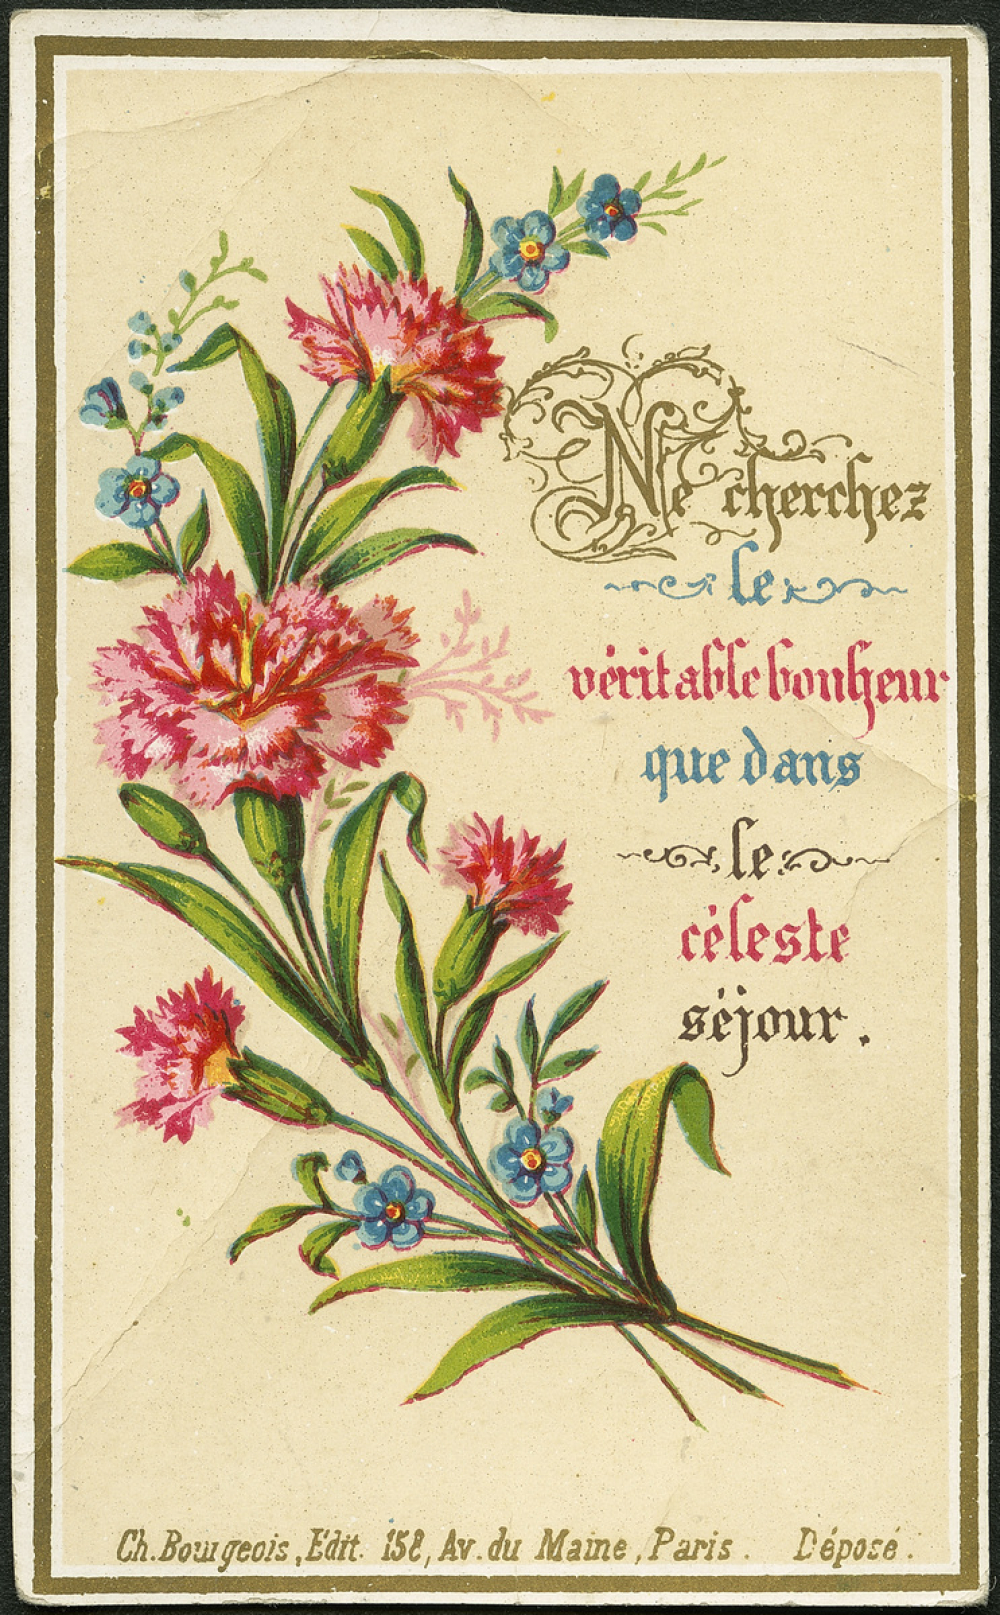 Ne cherchez
le
véritable bonheur
que dans
le
céleste
séjour.
Ch. Bourgeois, Edit. 158, Av. du Maine, Paris. Déposé.